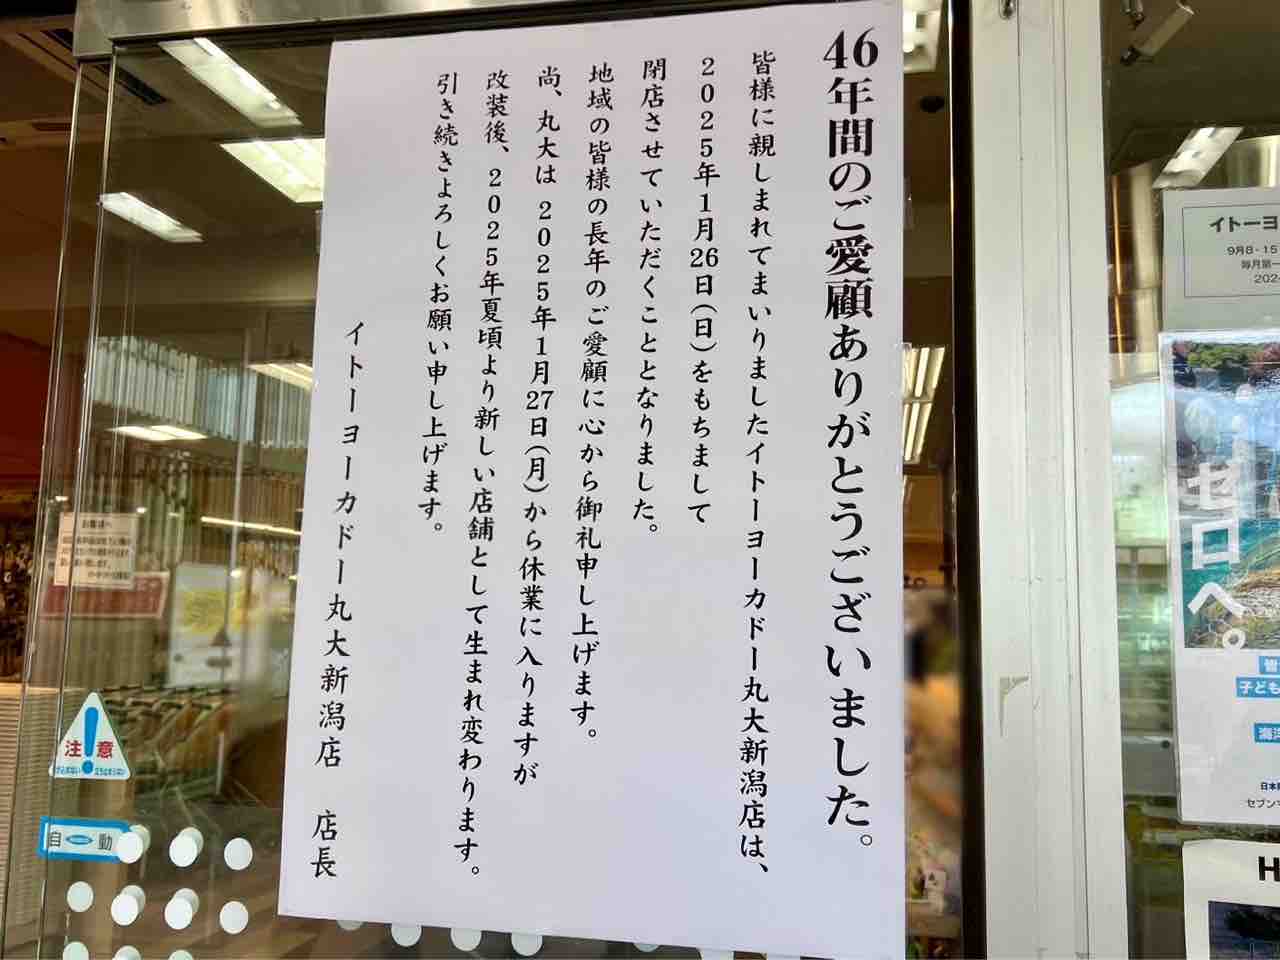 46年間のご愛顧ありがとうございました。
皆様に親しまれてまいりましたイトーヨーカドー丸大新潟店は、
2025年1月26日(日)をもちまして
閉店させていただくこととなりました。
地域の皆様の長年のご愛顧に心から御礼申し上げます。
尚、丸大は 2025年1月27日(月)から休業に入りますが
改装後、2025年夏頃より新しい店舗として生まれ変わります。
引き続きよろしくお願い申し上げます。
イトーヨーカドー丸大新潟店 店長
注意
自動
イトーヨ
9月8・15
毎月第一
202
ゼロへ。
皆
子ども
海洋
日本
セブン
H